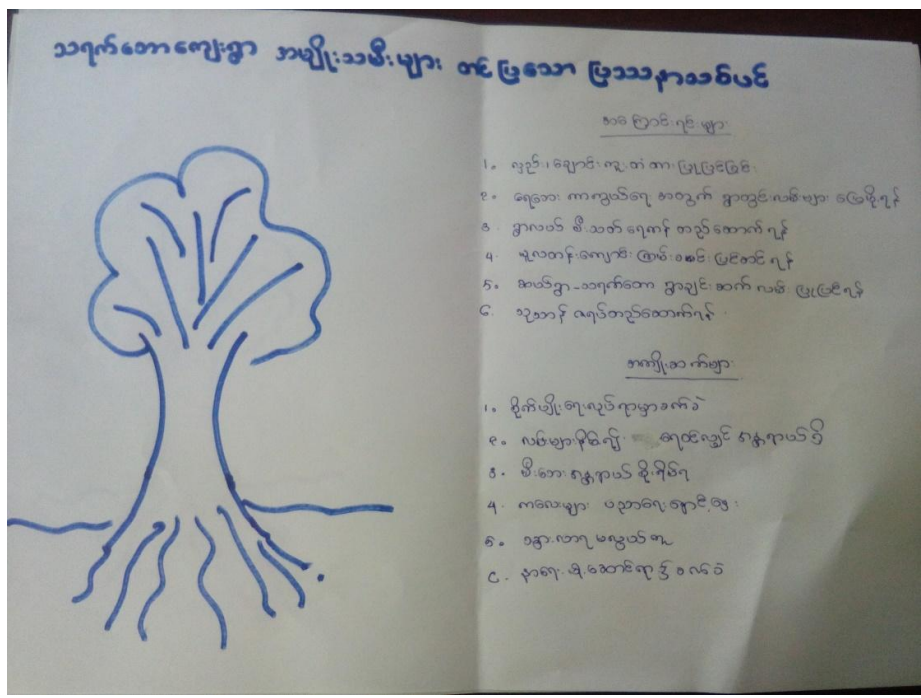 သရက်တောကျေးရွာ အမျိုးသမီးများ တင်ပြသော ပြဿနာသစ်ပင်
အကြောင်းရင်းများ
၁။ လှည်း၊ ချောင်းကူးတံတား ပြုပြင်ခြင်း
၂။ ရေဘေး ကာကွယ်ရေး အတွက် ရွာတွင်းလမ်းများ မြေဖို့ရန်
၃။ ရွာလယ် မီးသတ်ရေကန် တည်ဆောက်ရန်
၄။ မူလတန်းကျောင်း ခြံစည်းရိုး ပြင်ဆင်ရန်
၅။ ဆယ်ရွာ-သရက်တော ရွာချင်းဆက် လမ်း ပြုပြင်ရန်
၆။ သုသာန် ဇရပ်တည်ဆောက်ရန်
အကျိုးဆက်များ
၁။ စိုက်ပျိုးရေးလုပ်ရာမှာခက်ခဲ
၂။ လမ်းများနိမ့်၍ ရေထဲလျှင် အန္တရာယ်ရှိ
၃။ မီးဘေးအန္တရာယ် စိုးရိမ်ရ
၄။ ကလေးများ ပညာရေးနှောင့်နှေး
၅။ သွားလာရ မလွယ်ကူ
၆။ နာရေး ဆောင်ရွက်ရာ၌ ခက်ခဲ